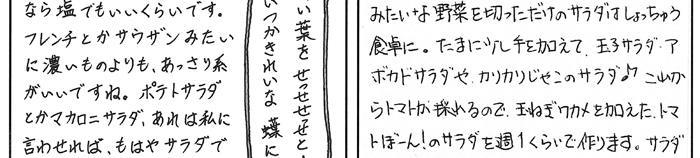 なら塩でもいいくらいです。
フレンチとかサウザンみたい
に濃いものよりも、あっさり系
がいいですね。ポテトサラダ
とかマカロニサラダ、あれは私に
言わせれば、もはやサラダで
い葉をせっせせっせと、
いつかきれいな蝶に
みたいな野菜を切っただけのサラダはしょっちゅう
食卓に。たまに少し手を加えて、玉子サラダ・ア
ボカドサラダや、カリカリじゃこのサラダ♪これか
らトマトが採れるので、玉ねぎワカメを加えた、トマ
トぼーん!のサラダを週1くらいで作ります。サラダ